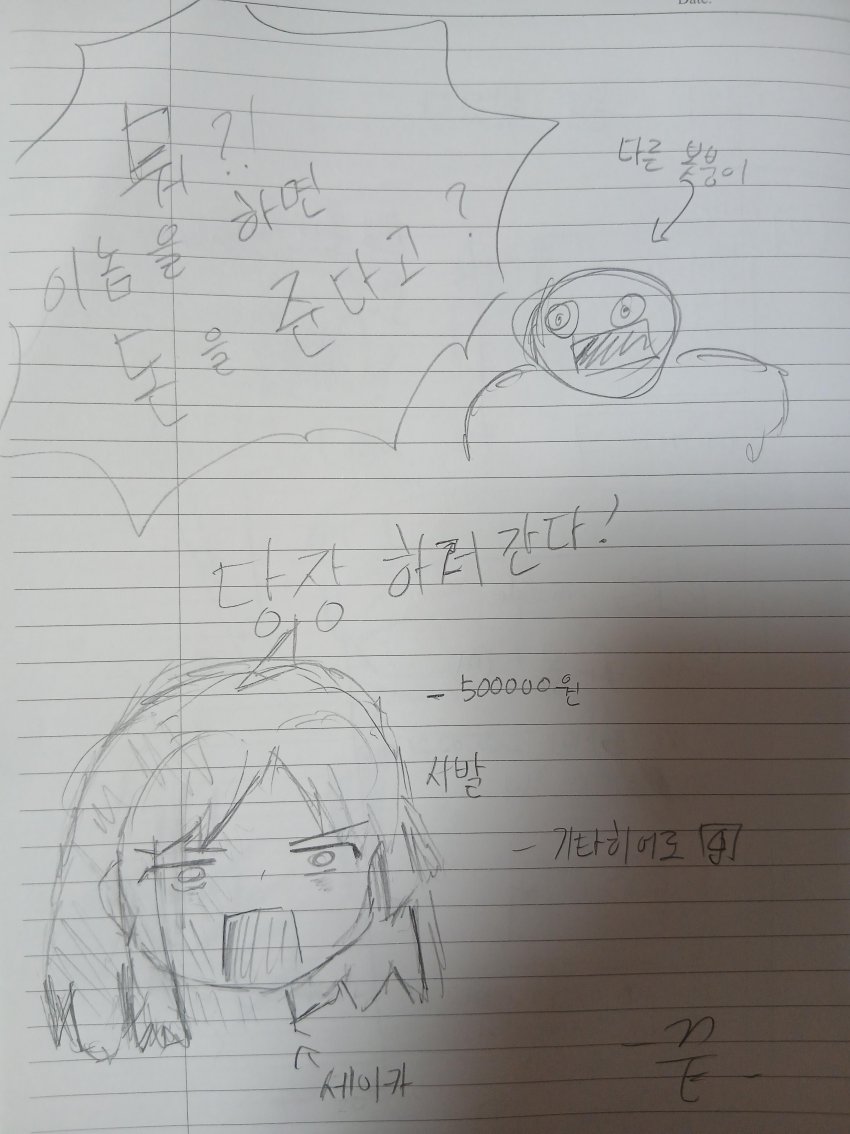 Date:
뭐?!
이놈을 하면
돈을 준다고?
다른 봇붕이
당장 하러 간다!
- 500000원
시발
- 기타히어로
세이카
- 끝 -